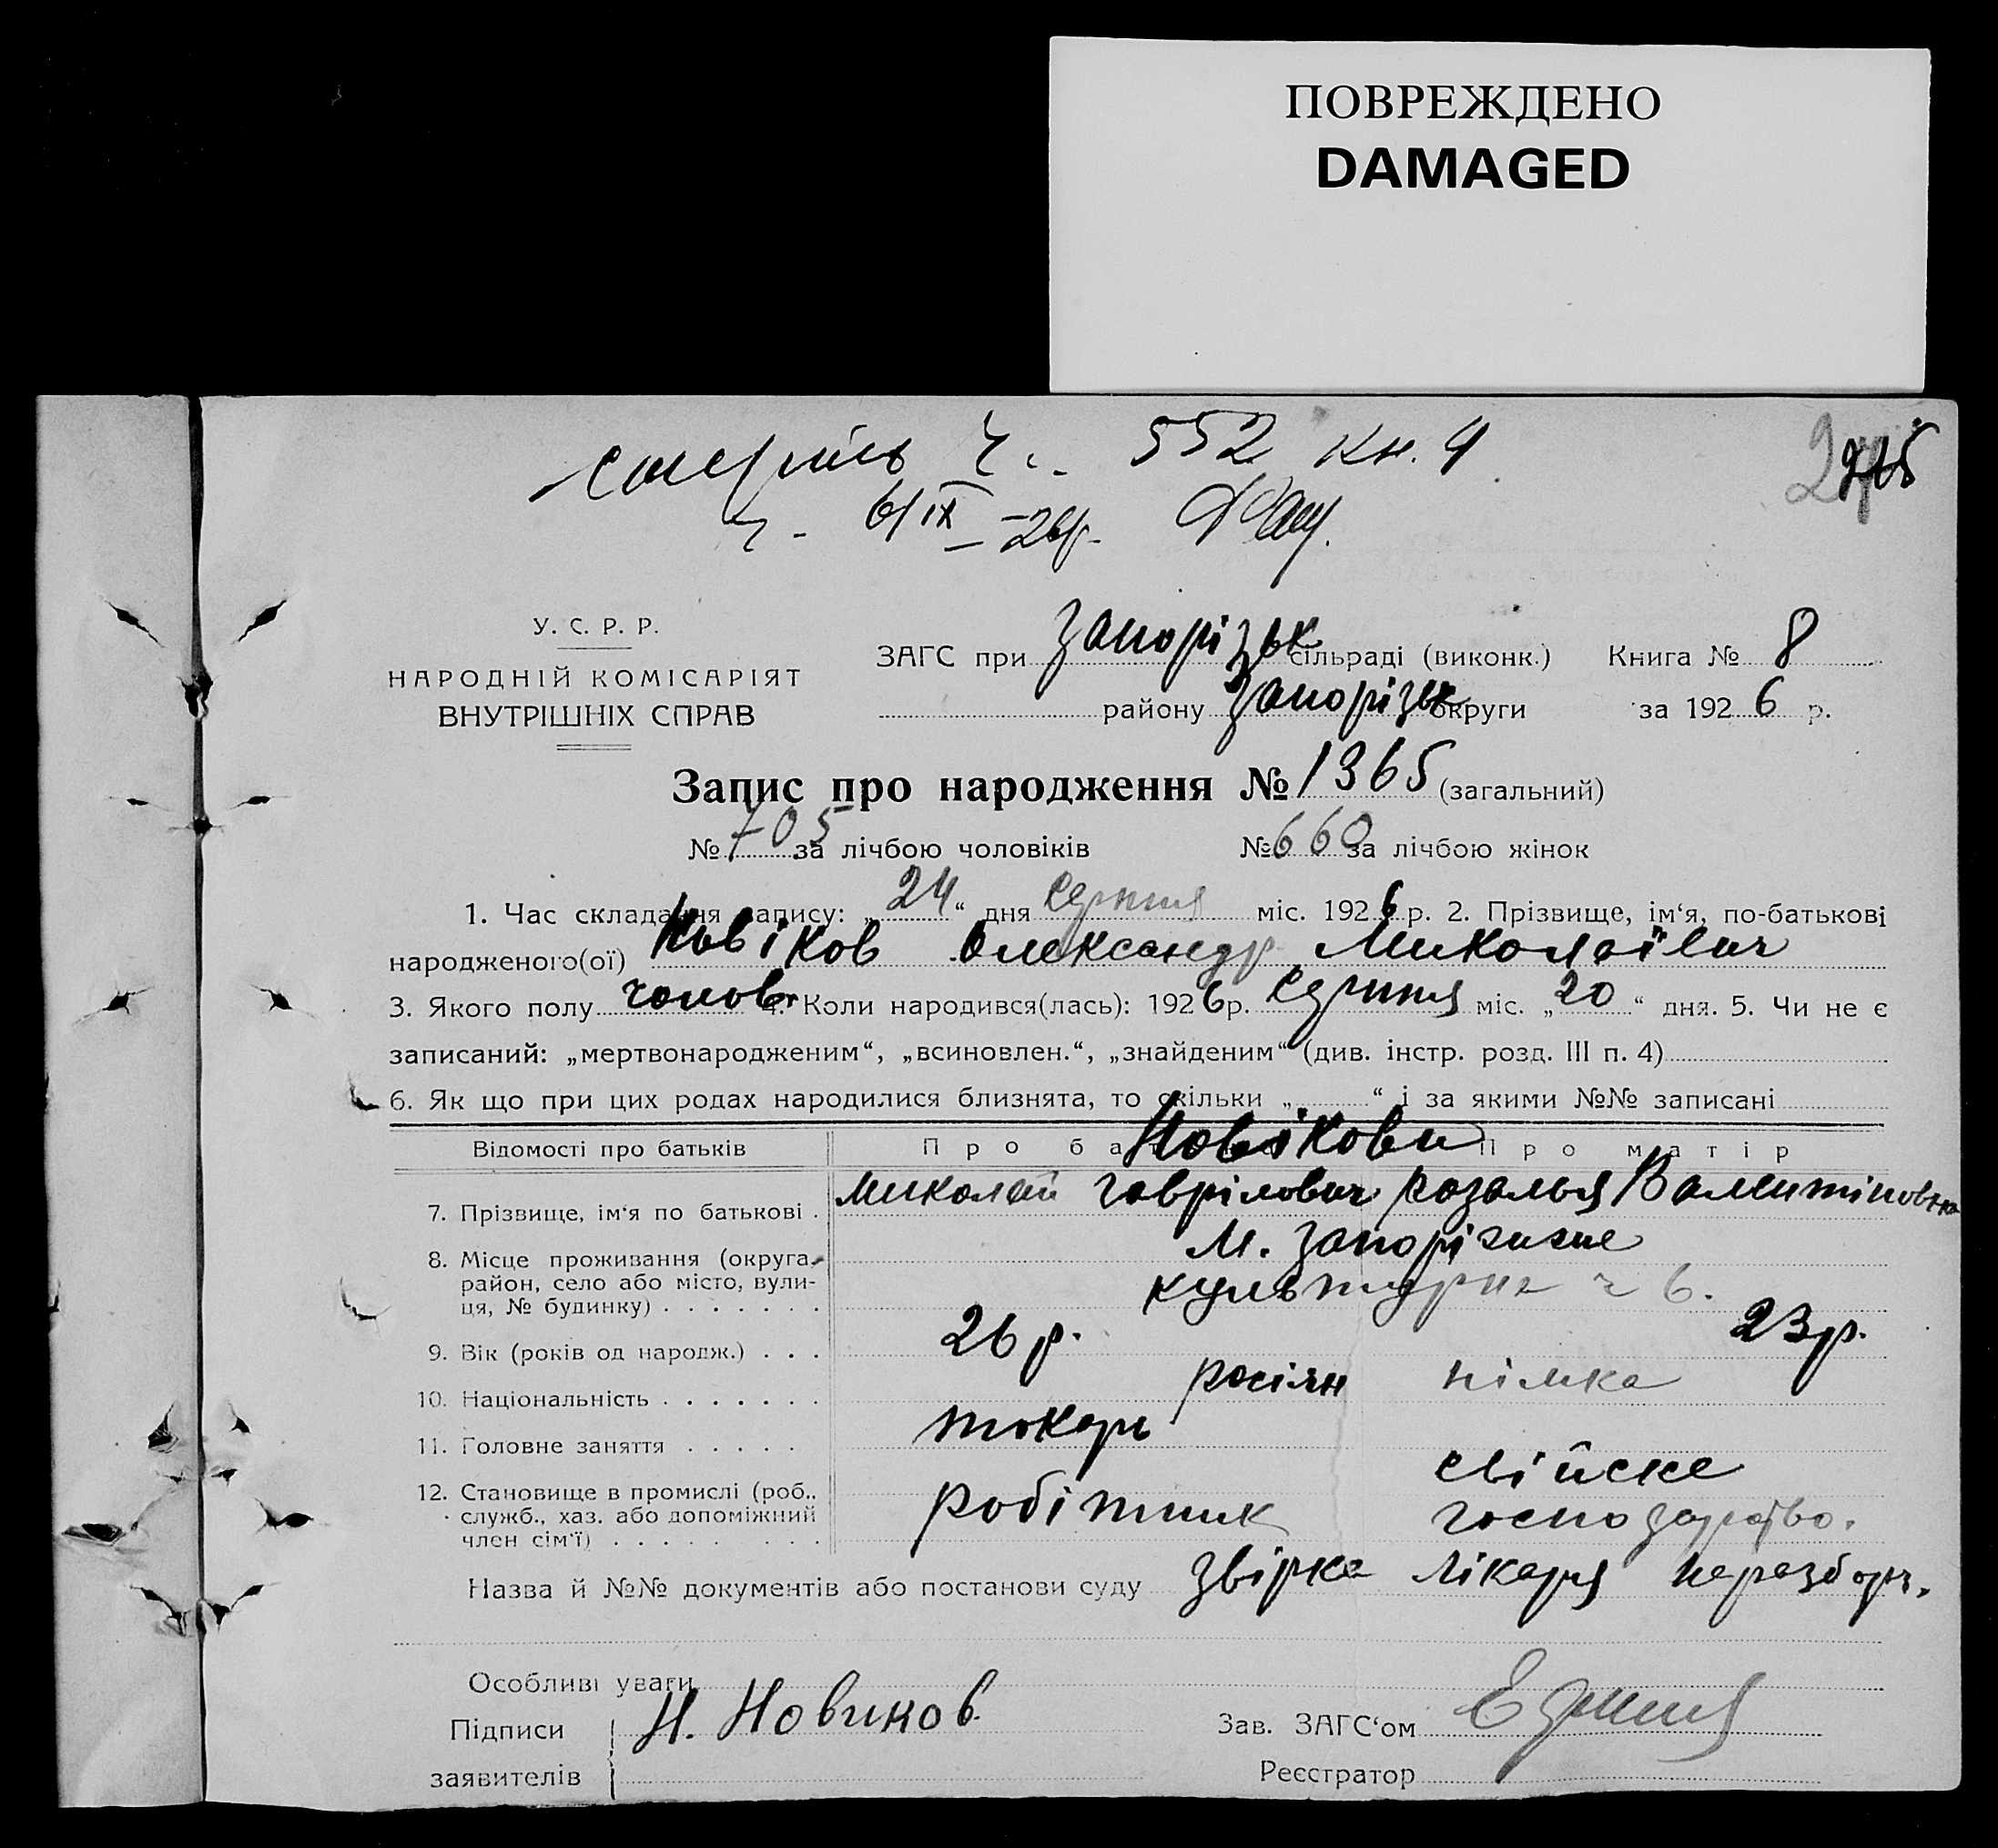 ПОВРЕЖДЕНО
DAMAGED
смерть Ч. 552 кн. 4
6/IX - 26р.
215
У. С. Р. Р.
НАРОДНІЙ КОМІСАРІЯТ
ВНУТРІШНІХ СПРАВ
ЗАГС при Запорізьк сільраді (виконк.) Книга № 8
району Запорізьк округи за 1926 р.
Запис про народження № 1365 (загальний)
№ 705 за лічбою чоловіків № 660 за лічбою жінок
1. Час складання запису: „24“ дня Серпня міс. 1926 р. 2. Прізвище, ім‘я, по-батькові
народженого(ої) Новіков Олександр Миколаївич
3. Якого полу чолов. 4. Коли народився(лась): 1926 р. Серпня міс. „20“ дня. 5. Чи не є
записаний: „мертвонародженим“, „всиновлен.“, „знайденим“ (див. інстр. розд. III п. 4)
6. Як що при цих родах народилися близнята, то скільки „ “ і за якими №№ записані
Відомості про батьків Про ба Новікови Про матір
7. Прізвище, ім‘я по батькові . Миколай Гаврілович Розалья Валентіновна
8. Місце проживання (округа, район, село або місто, вули-ця, № будинку) . . . . . . . М. Запоріжже
Культурна ч 6.
9. Вік (років од народж.) . . . 26 р. 23 р.
10. Національність . . . . . . . росіян німка
11. Головне заняття . . . . . токарь
свійске
12. Становище в промислі (роб., служб., хаз. або допоміжний член сім‘ї) . . . . . . . . робітник господарство.
Назва й №№ документів або постанови суду Звірка лікаря неразборч.
Особливі уваги
Підписи Н. Новиков Зав. ЗАГС‘ом
заявителів Реєстратор